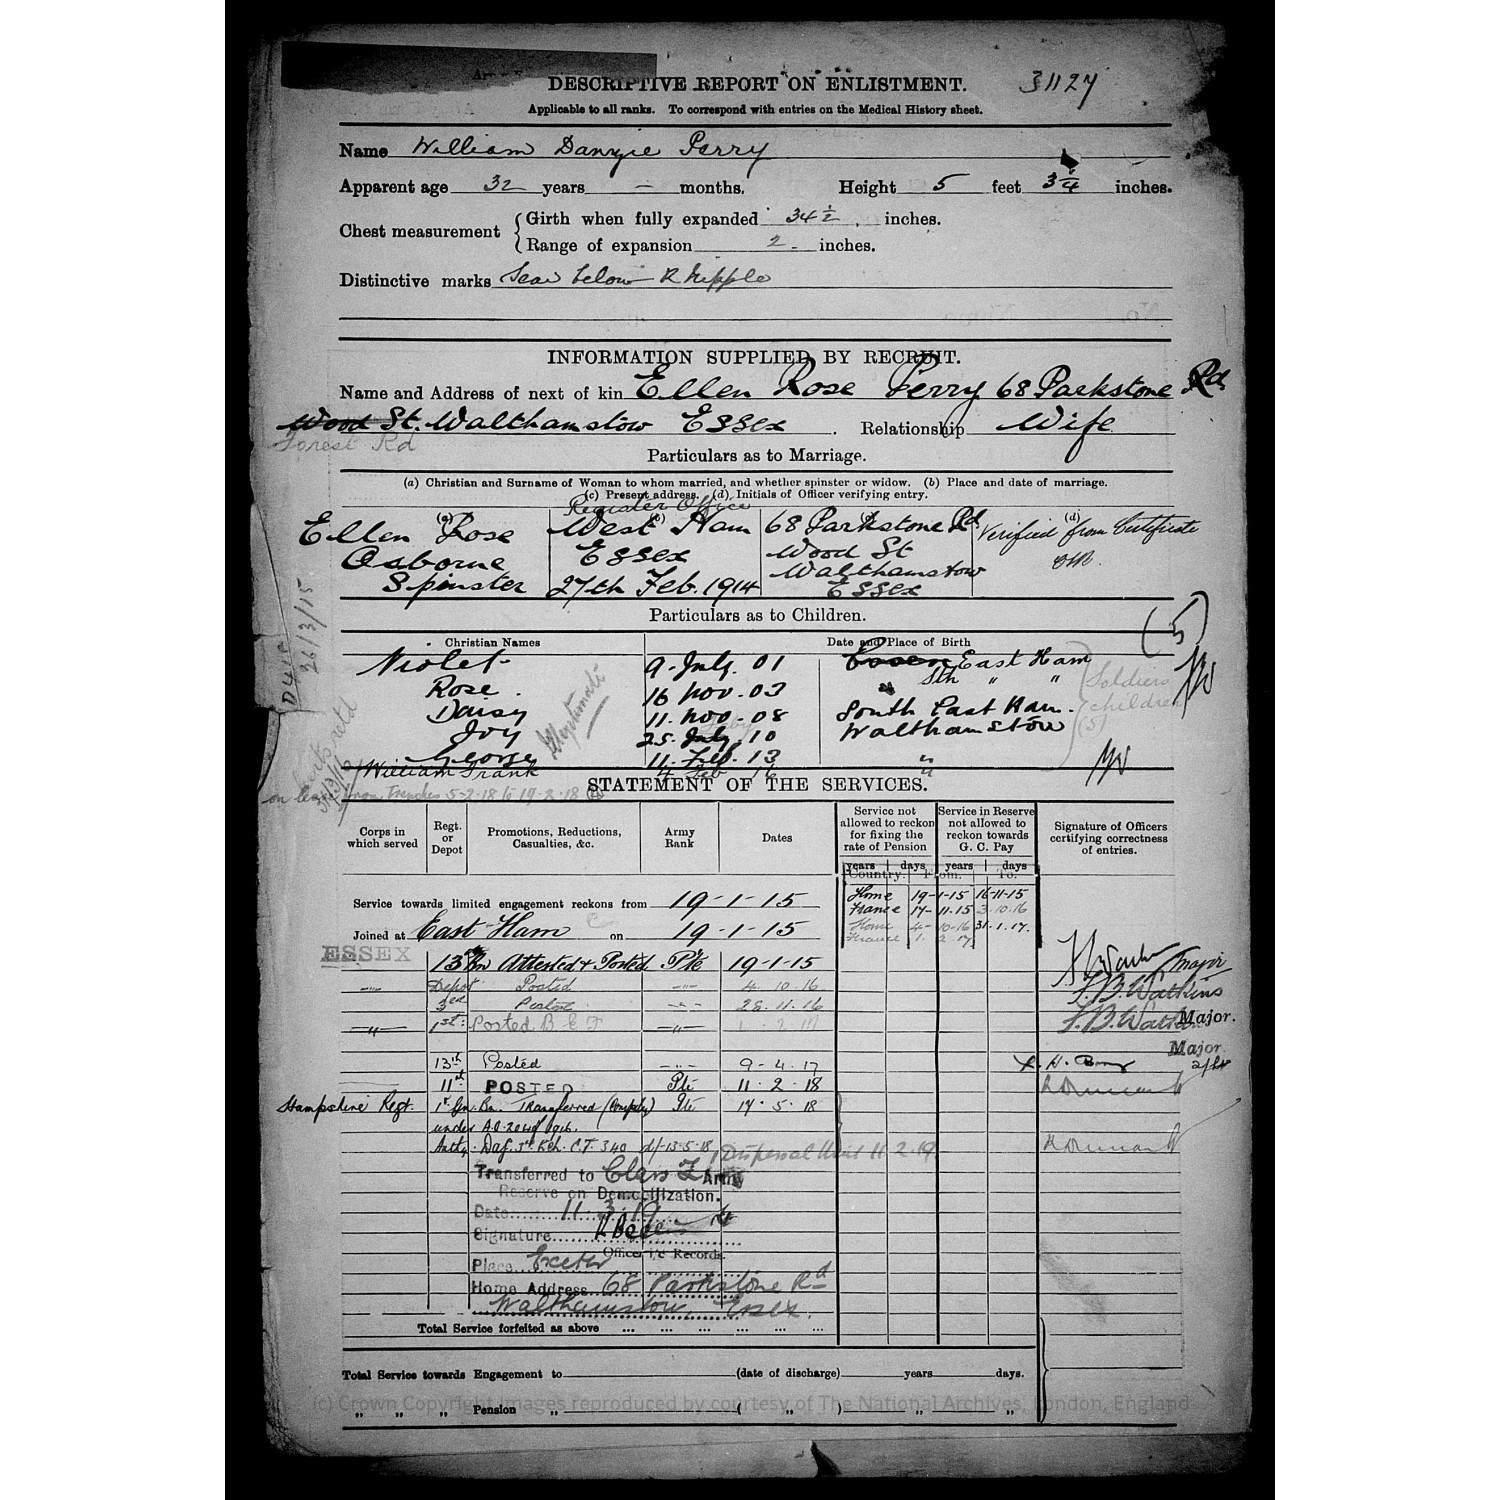 DESCRIPTIVE REPORT ON ENLISTMENT. 31127
Applicable to all ranks. To correspond with entries on the Medical History sheet.
Name William Danzie Perry
Apparent age 32 years — months. Height 5 feet 3 1/4 inches.
Chest measurement
Girth when fully expanded 34 1/2 inches.
Range of expansion 2 inches.
Distinctive marks Scar below R Nipple
INFORMATION SUPPLIED BY RECRUIT.
Name and Address of next of kin Ellen Rose Perry 68 Parkstone Rd
Wood St. Walthamstow Essex. Relationship Wife
Forest Rd
Particulars as to Marriage.
(a) Christian and Surname of Woman to whom married, and whether spinster or widow. (b) Place and date of marriage.
(c) Present address. (d) Initials of Officer verifying entry.
Register Office
(a) (b) (c) (d)
Ellen Rose West Ham 68 Parkstone Rd Verified from Certificate
Osborne Essex Wood St
Spinster 27th Feb. 1914 Walthamstow
Essex
Particulars as to Children.
(5)
Christian Names Date and Place of Birth
Violet 9 July 01 East Ham
Rose 16 Nov. 03 Sth " "
Daisy 11. Nov. 08 South East Ham.
Ivy 25. July. 10 Walthamstow
George 11. Feb. 13 "
William Frank 4 Feb 16 "
Illegitimate
Soldiers
children
(5)
26/3/15
STATEMENT OF THE SERVICES.
on leave from Trenches 5-2-18 to 19-2-18
Corps in which served
Regt. or Depot
Promotions, Reductions, Casualties, &c.
Army Rank
Dates
Service not allowed to reckon for fixing the rate of Pension
Service in Reserve not allowed to reckon towards G. C. Pay
Signature of Officers certifying correctness of entries.
years days years days
Country. From. To.
Home 19-1-15 16-11-15
France 17-11-15 3.10.16
Home 4-10-16 31.1.17.
France 1. 2. 17.
Service towards limited engagement reckons from 19-1-15
Joined at East Ham on 19-1-15
ESSEX 13th Bn Attested & Posted Pte 19-1-15 Major
Depot Posted 4.10.16 F. B. Watkins
3rd Posted 28.11.16
1st Posted B E F 1. 2. 17 F. B. Watkins Major.
Major
13th Posted 9-4-17
11th POSTED Pte 11.2.18
Hampshire Regt. 1st Gn. Bn. Transferred (Compulsy) Pte 14.5.18
under A.O. 204 of 1916.
Auth. C.T. 340 d/-13-5-18 Dispersal Unit 11.2.19
Transferred to Class Z Army
Reserve on Demobilization.
Date 11.3.19
Signature
Officer i/c Records.
Place Exeter
Home Address 68 Parkstone Rd
Walthamstow, Essex.
Total Service forfeited as above ... ... ... ... ... ...
Total Service towards Engagement to (date of discharge) years days.
" " " Pension " ( " ) " "
(c) Crown Copyright Images reproduced by courtesy of The National Archives, London, England